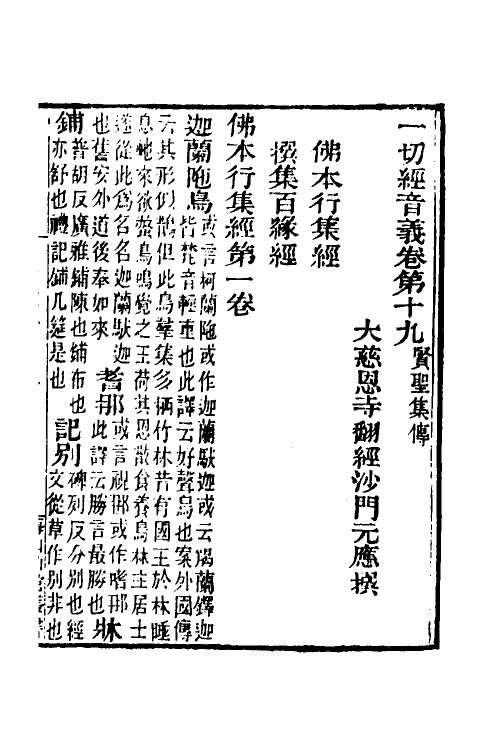 一切經音義卷第十九 賢聖集傳
大慈恩寺翻經沙門元應撰
佛本行集經
撰集百緣經
佛本行集經第一卷
迦蘭陁鳥 或言柯蘭陁或作迦蘭馱迦或云羯蘭鐸迦
皆梵音輕重也此譯云好聲鳥也案外國傳
云其形似鵲但此鳥羣集多栖竹林昔有國王於林睡
息虵來欲螫鳥鳴覺之王荷其恩散食養鳥林主居士
遂從此爲名名迦蘭馱迦
也舊安外道後奉如來 耆那 或言視那或作嗜那
此譯云勝言最勝也 牀
鋪 普胡反廣雅鋪陳也鋪布也
亦舒也禮記鋪几筵是也 記別 碑列反分別也經
文從草作莂非也